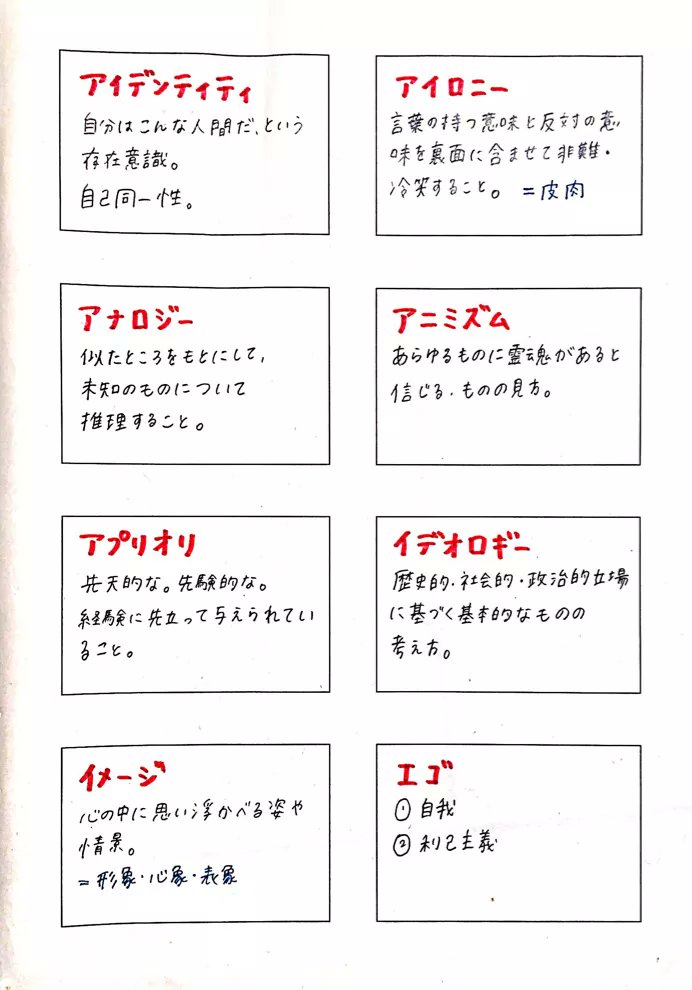 アイデンティティ
自分はこんな人間だ、という
存在意識。
自己同一性。
アイロニー
言葉の持つ意味と反対の意
味を裏面に含ませて非難・
冷笑すること。 =皮肉
アナロジー
似たところをもとにして、
未知のものについて
推理すること。
アニミズム
あらゆるものに霊魂があると
信じる、ものの見方。
アプリオリ
先天的な。先験的な。
経験に先立って与えられてい
ること。
イデオロギー
歴史的・社会的・政治的立場
に基づく基本的なものの
考え方。
イメージ
心の中に思い浮かべる姿や
情景。
=形象・心象・表象
エゴ
① 自我
② 利己主義